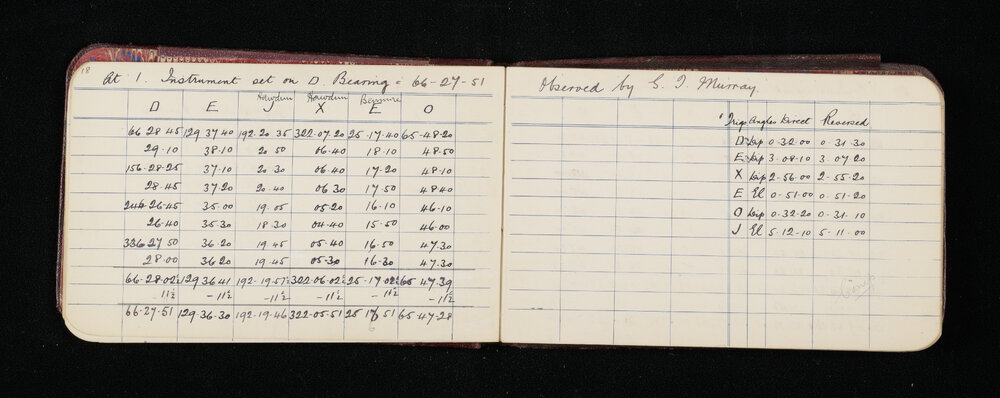 18
At 1. Instrument set on D Bearing = 66-27-51
Hawdun Hawdun Bensmire
D E J X E O
66 28 45 129 37 40 192.20 35 322.07.20 25-17-40 65-48-20
29.10 38.10 20 50 06.40 18.10 48.50
156-28-25 37.10 20 30 06.40 17.20 48.10
28.45 37.20 20.40 06 30 17.50 48.40
246-26-45 35.00 19.05 05.20 16.10 46.10
26.40 35.30 18.30 04.40 15.50 46.00
336 27 50 36.20 19.45 05.40 16.50 47.30
28.00 36.20 19.45 05.30 16.30 47.30
66-28-02½ 129 36 41 192-19-57½ 322-06-02½ 25-17-02½ 65 47-39
-11½ -11½ -11½ -11½ -11½ -11½
66-27-51 129-36-30 192-19-46 322-05-51 25 16 51 65-47-28
6
Observed by G. J. Murray.
Trig Angles Direct Reversed
D Dip 0.32.00 0.31.30
E Dip 3.08.10 3.07.20
X Dip 2-56.00 2-55.20
E El 0-51.00 0-51.20
O Dip 0-32.20 0-31.10
J El 5-12-10 5-11-00